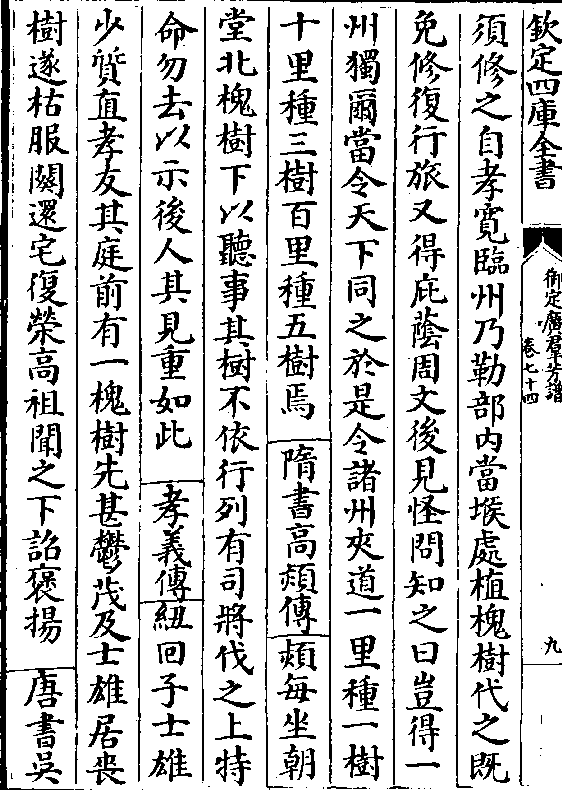 欽定四庫全書
御定廣羣芳譜
卷七十四
九
須修之自孝寛臨州乃勒部内當堠處植槐樹代之既
免修復行旅又得庇蔭周文後見怪問知之曰豈得一
州獨爾當令天下同之於是令諸州夾道一里種一樹
十里種三樹百里種五樹焉 隋書高熲傳 熲每坐朝
堂北槐樹下以聽事其樹不依行列有司將伐之上特
命勿去以示後人其見重如此 孝義傳 紐回子士雄
少質直孝友其庭前有一槐樹先甚鬱茂及士雄居喪
樹遂枯服闋還宅復榮高祖聞之下詔褒揚 唐書吳